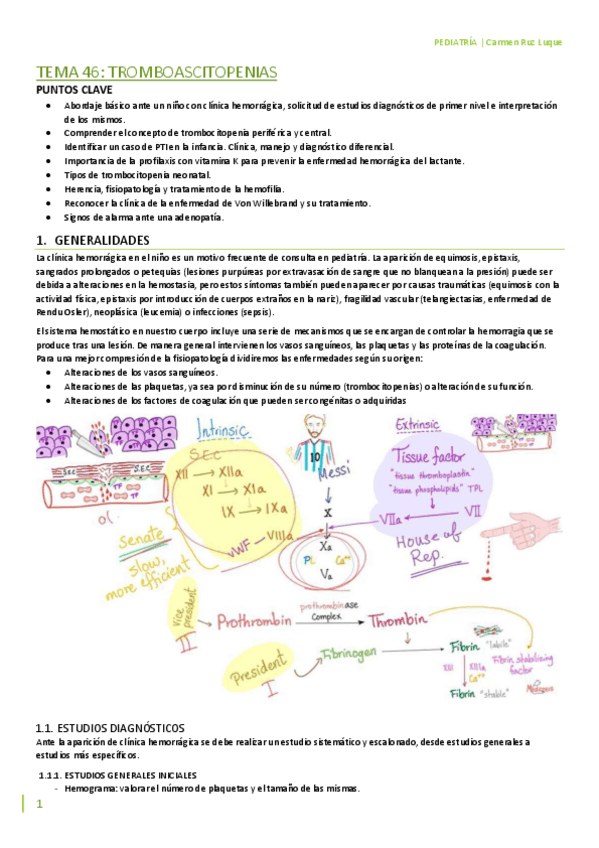 PEDIATRÍA | Carmen Ruz Luque
TEMA 46: TROMBOASCITOPENIAS
PUNTOS CLAVE
• Abordaje básico ante un niño con clínica hemorrágica, solicitud de estudios diagnósticos de primer nivel e interpretación
de los mismos.
• Comprender el concepto de trombocitopenia periférica y central.
• Identificar un caso de PTI en la infancia. Clínica, manejo y diagnóstico diferencial.
• Importancia de la profilaxis con vitamina K para prevenir la enfermedad hemorrágica del lactante.
• Tipos de trombocitopenia neonatal.
• Herencia, fisiopatología y tratamiento de la hemofilia.
• Reconocer la clínica de la enfermedad de Von Willebrand y su tratamiento.
• Signos de alarma ante una adenopatía.
1. GENERALIDADES
La clínica hemorrágica en el niño es un motivo frecuente de consulta en pediatría. La aparición de equimosis, epistaxis,
sangrados prolongados o petequias (lesiones purpúreas por extravasación de sangre que no blanquean a la presión) puede ser
debida a alteraciones en la hemostasia, pero estos síntomas también pueden aparecer por causas traumáticas (equimosis con la
actividad física, epistaxis por introducción de cuerpos extraños en la nariz), fragilidad vascular (telangiectasias, enfermedad de
Rendu Osler), neoplásica (leucemia) o infecciones (sepsis).
El sistema hemostático en nuestro cuerpo incluye una serie de mecanismos que se encargan de controlar la hemorragia que se
produce tras una lesión. De manera general intervienen los vasos sanguíneos, las plaquetas y las proteínas de la coagulación.
Para una mejor compresión de la fisiopatología dividiremos las enfermedades según su origen:
• Alteraciones de los vasos sanguíneos.
• Alteraciones de las plaquetas, ya sea por disminución de su número (trombocitopenias) o alteración de su función.
• Alteraciones de los factores de coagulación que pueden ser congénitas o adquiridas
Intrinsic
Extrinsic
S.E.C
S.E.C.
S.E.C.
TF
TF
XII → XIIa
XI → XIa
IX → IXa
vWF - VIIIa
Senate
slow,
more efficient
10
Messi
X
Xa
PL
Ca++
Va
Tissue factor
"tissue thromboplastin"
"tissue phospholipids" TPL
VIIa
VII
House of
Rep.
vice
president
II
Prothrombin
prothrombinase
Complex
Thrombin
President
I
Fibrinogen
Fibrin "labile"
XIII
XIIIa
Ca++
Fibrin stabilizing
factor
Fibrin "stable"
1.1. ESTUDIOS DIAGNÓSTICOS
Ante la aparición de clínica hemorrágica se debe realizar un estudio sistemático y escalonado, desde estudios generales a
estudios más específicos.
1.1.1. ESTUDIOS GENERALES INICIALES
- Hemograma: valorar el número de plaquetas y el tamaño de las mismas.
1